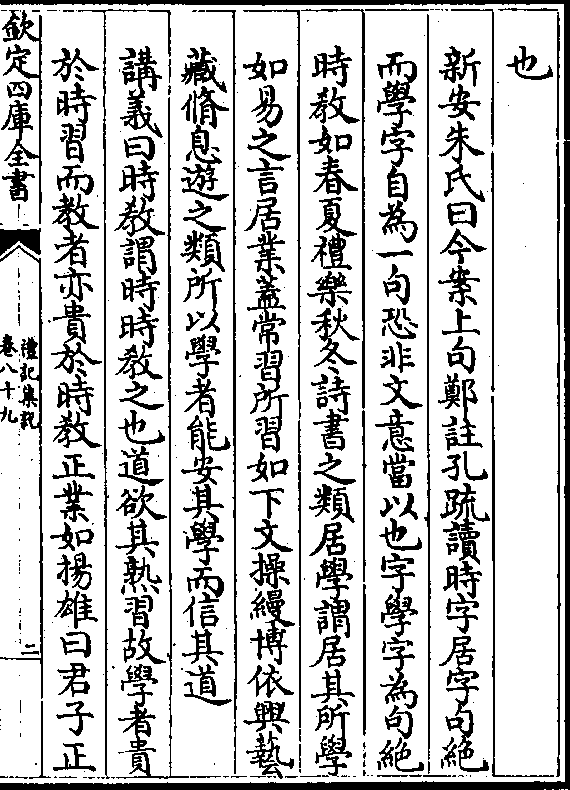 也
新安朱氏曰今案上句鄭註孔疏讀時字居字句絶
而學字自為一句恐非文意當以也字學字為句絶
時教如春夏禮樂秋冬詩書之類居學謂居其所學
如易之言居業蓋常習所習如下文操縵博依興藝
藏脩息遊之類所以學者能安其學而信其道
講義曰時教謂時時教之也道欲其熟習故學者貴
於時習而教者亦貴於時教正業如揚雄曰君子正
欽定四庫全書
禮記集說
卷八十九
二